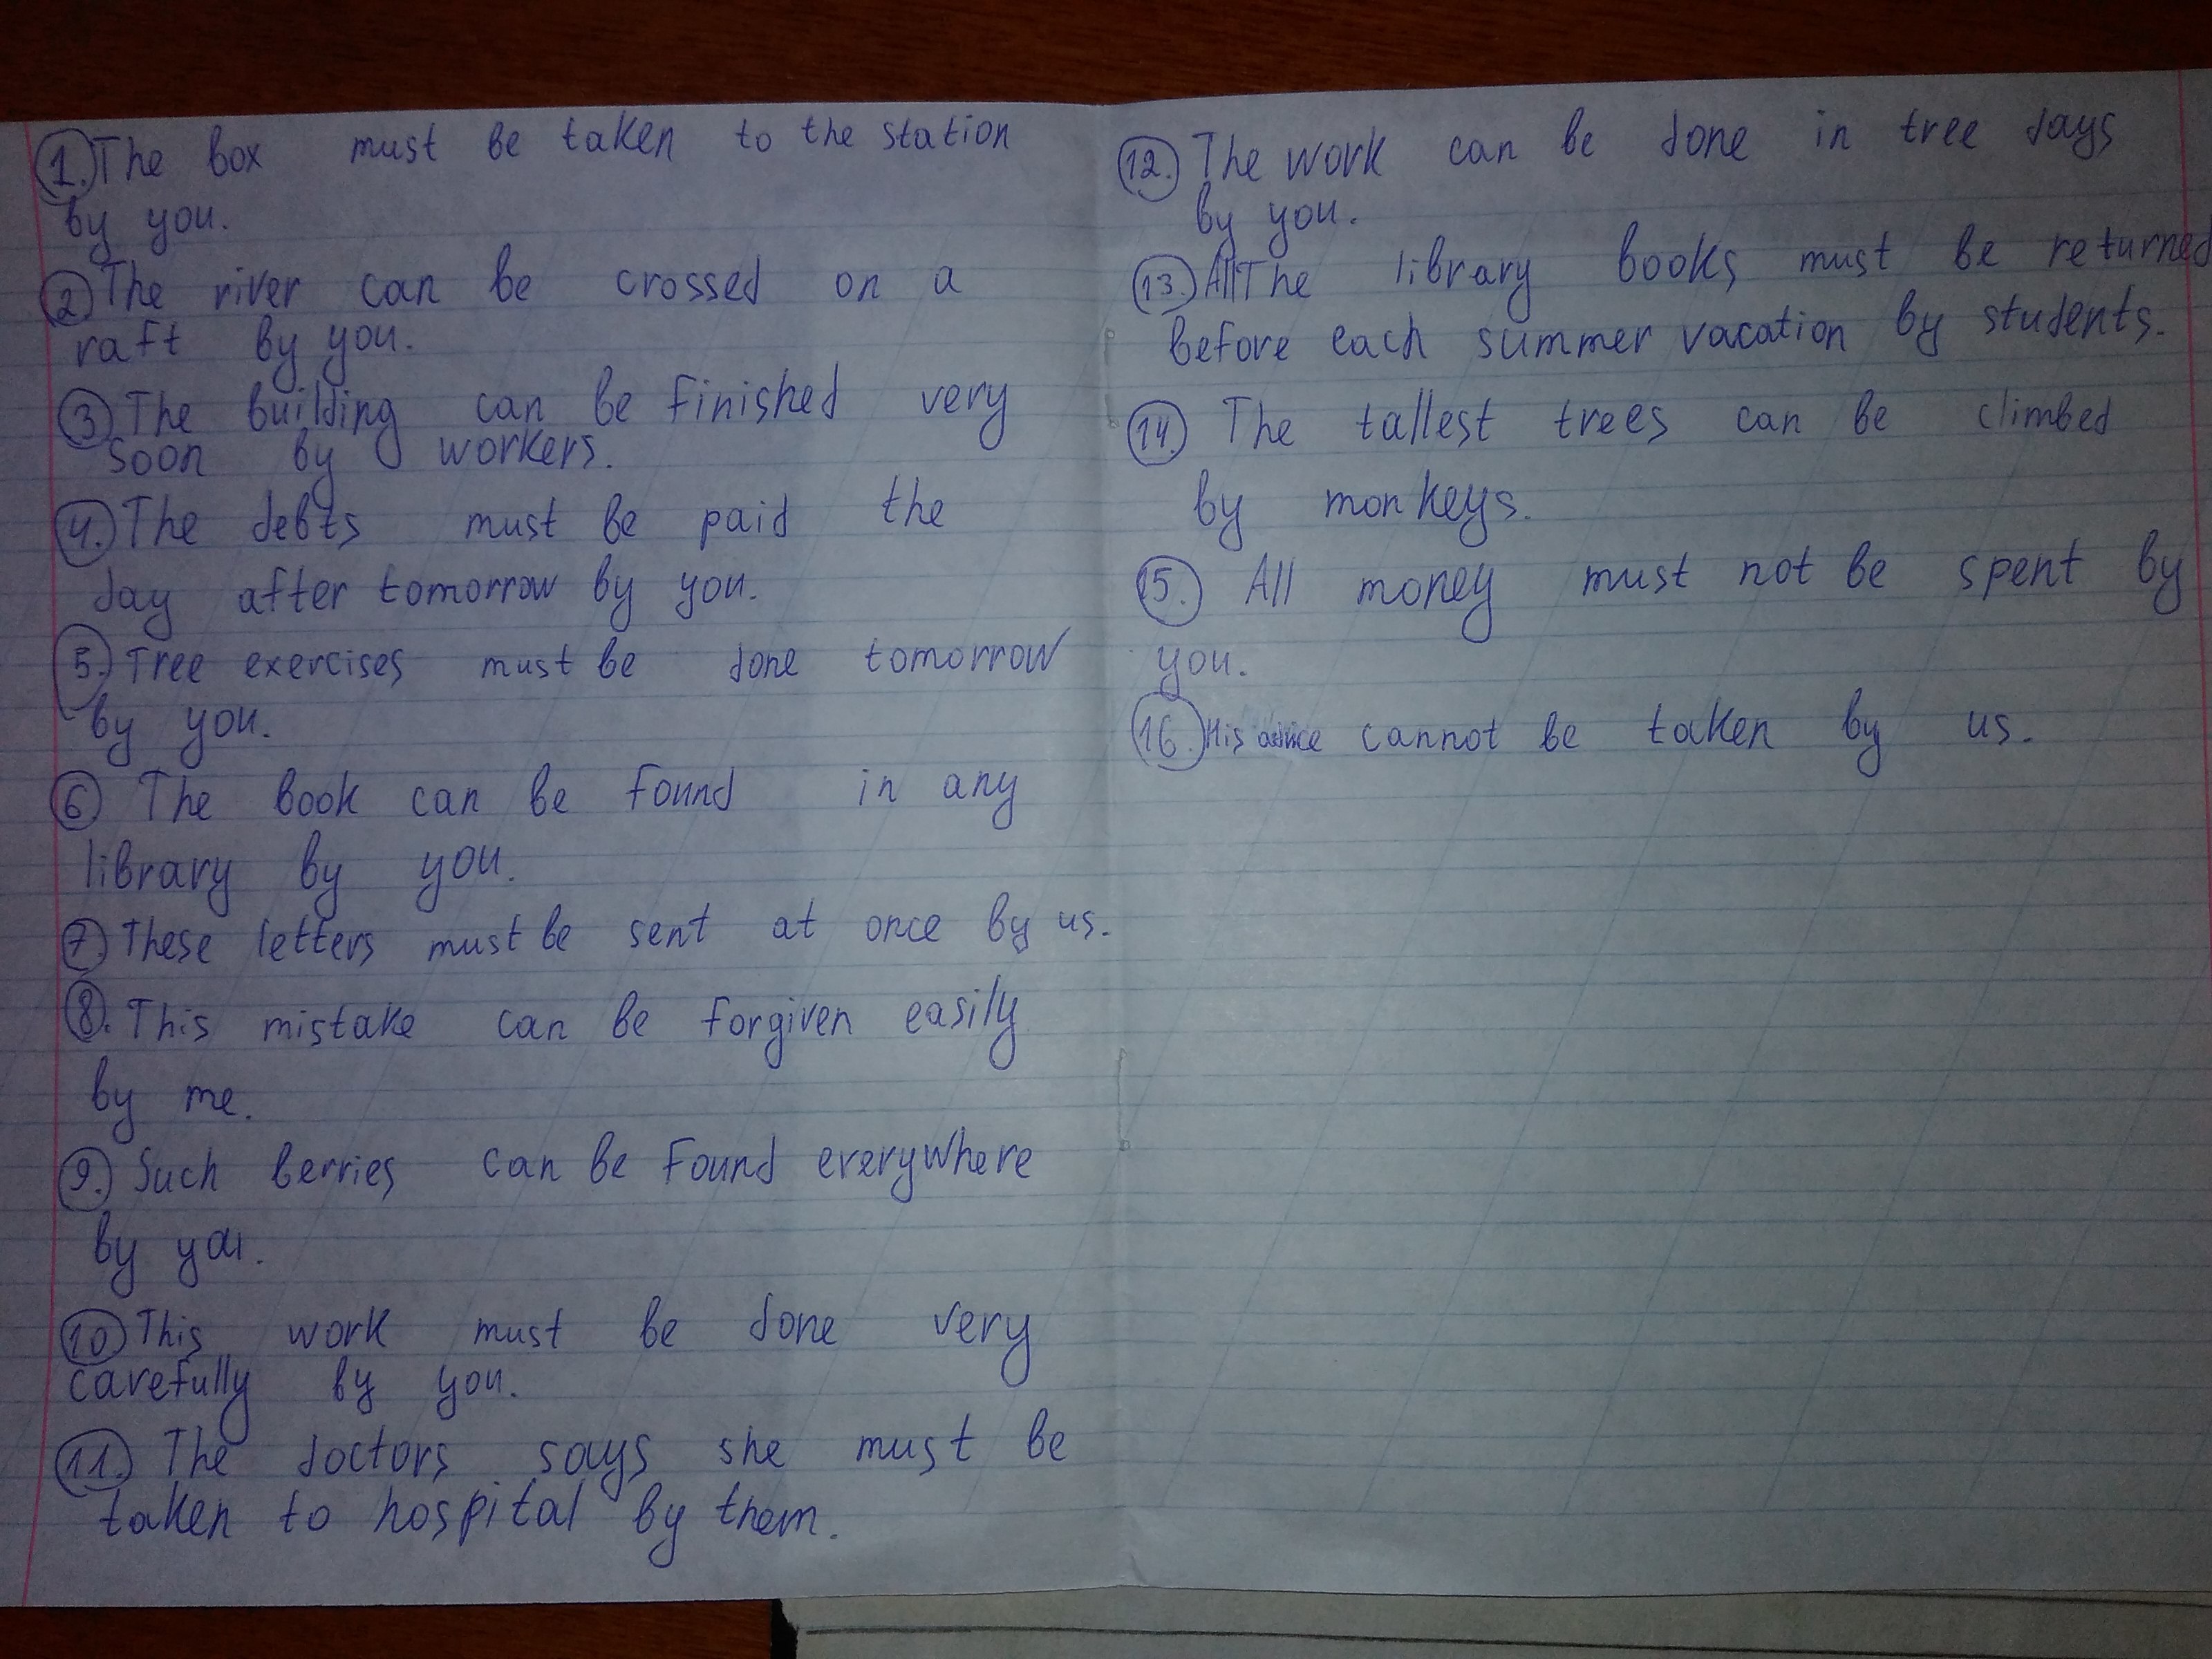 1. The box must be taken to the station
by you.
2 The river can be crossed on a
raft by you.
3 The building can be finished very
soon by workers.
4. The debts must be paid the
day after tomorrow by you.
5. Tree exercises must be done tomorrow
by you.
6 The book can be found in any
library by you.
7. These letters must be sent at once by us.
8. This mistake can be forgiven easily
by me.
9. Such berries can be found everywhere
by you.
10 This work must be done very
carefully by you.
11. The doctors says she must be
taken to hospital by them.
12. The work can be done in tree days
by you.
13. All The library books must be returned
before each summer vacation by students.
14. The tallest trees can be climbed
by monkeys.
15. All money must not be spent by
you.
16. His advice cannot be taken by us.